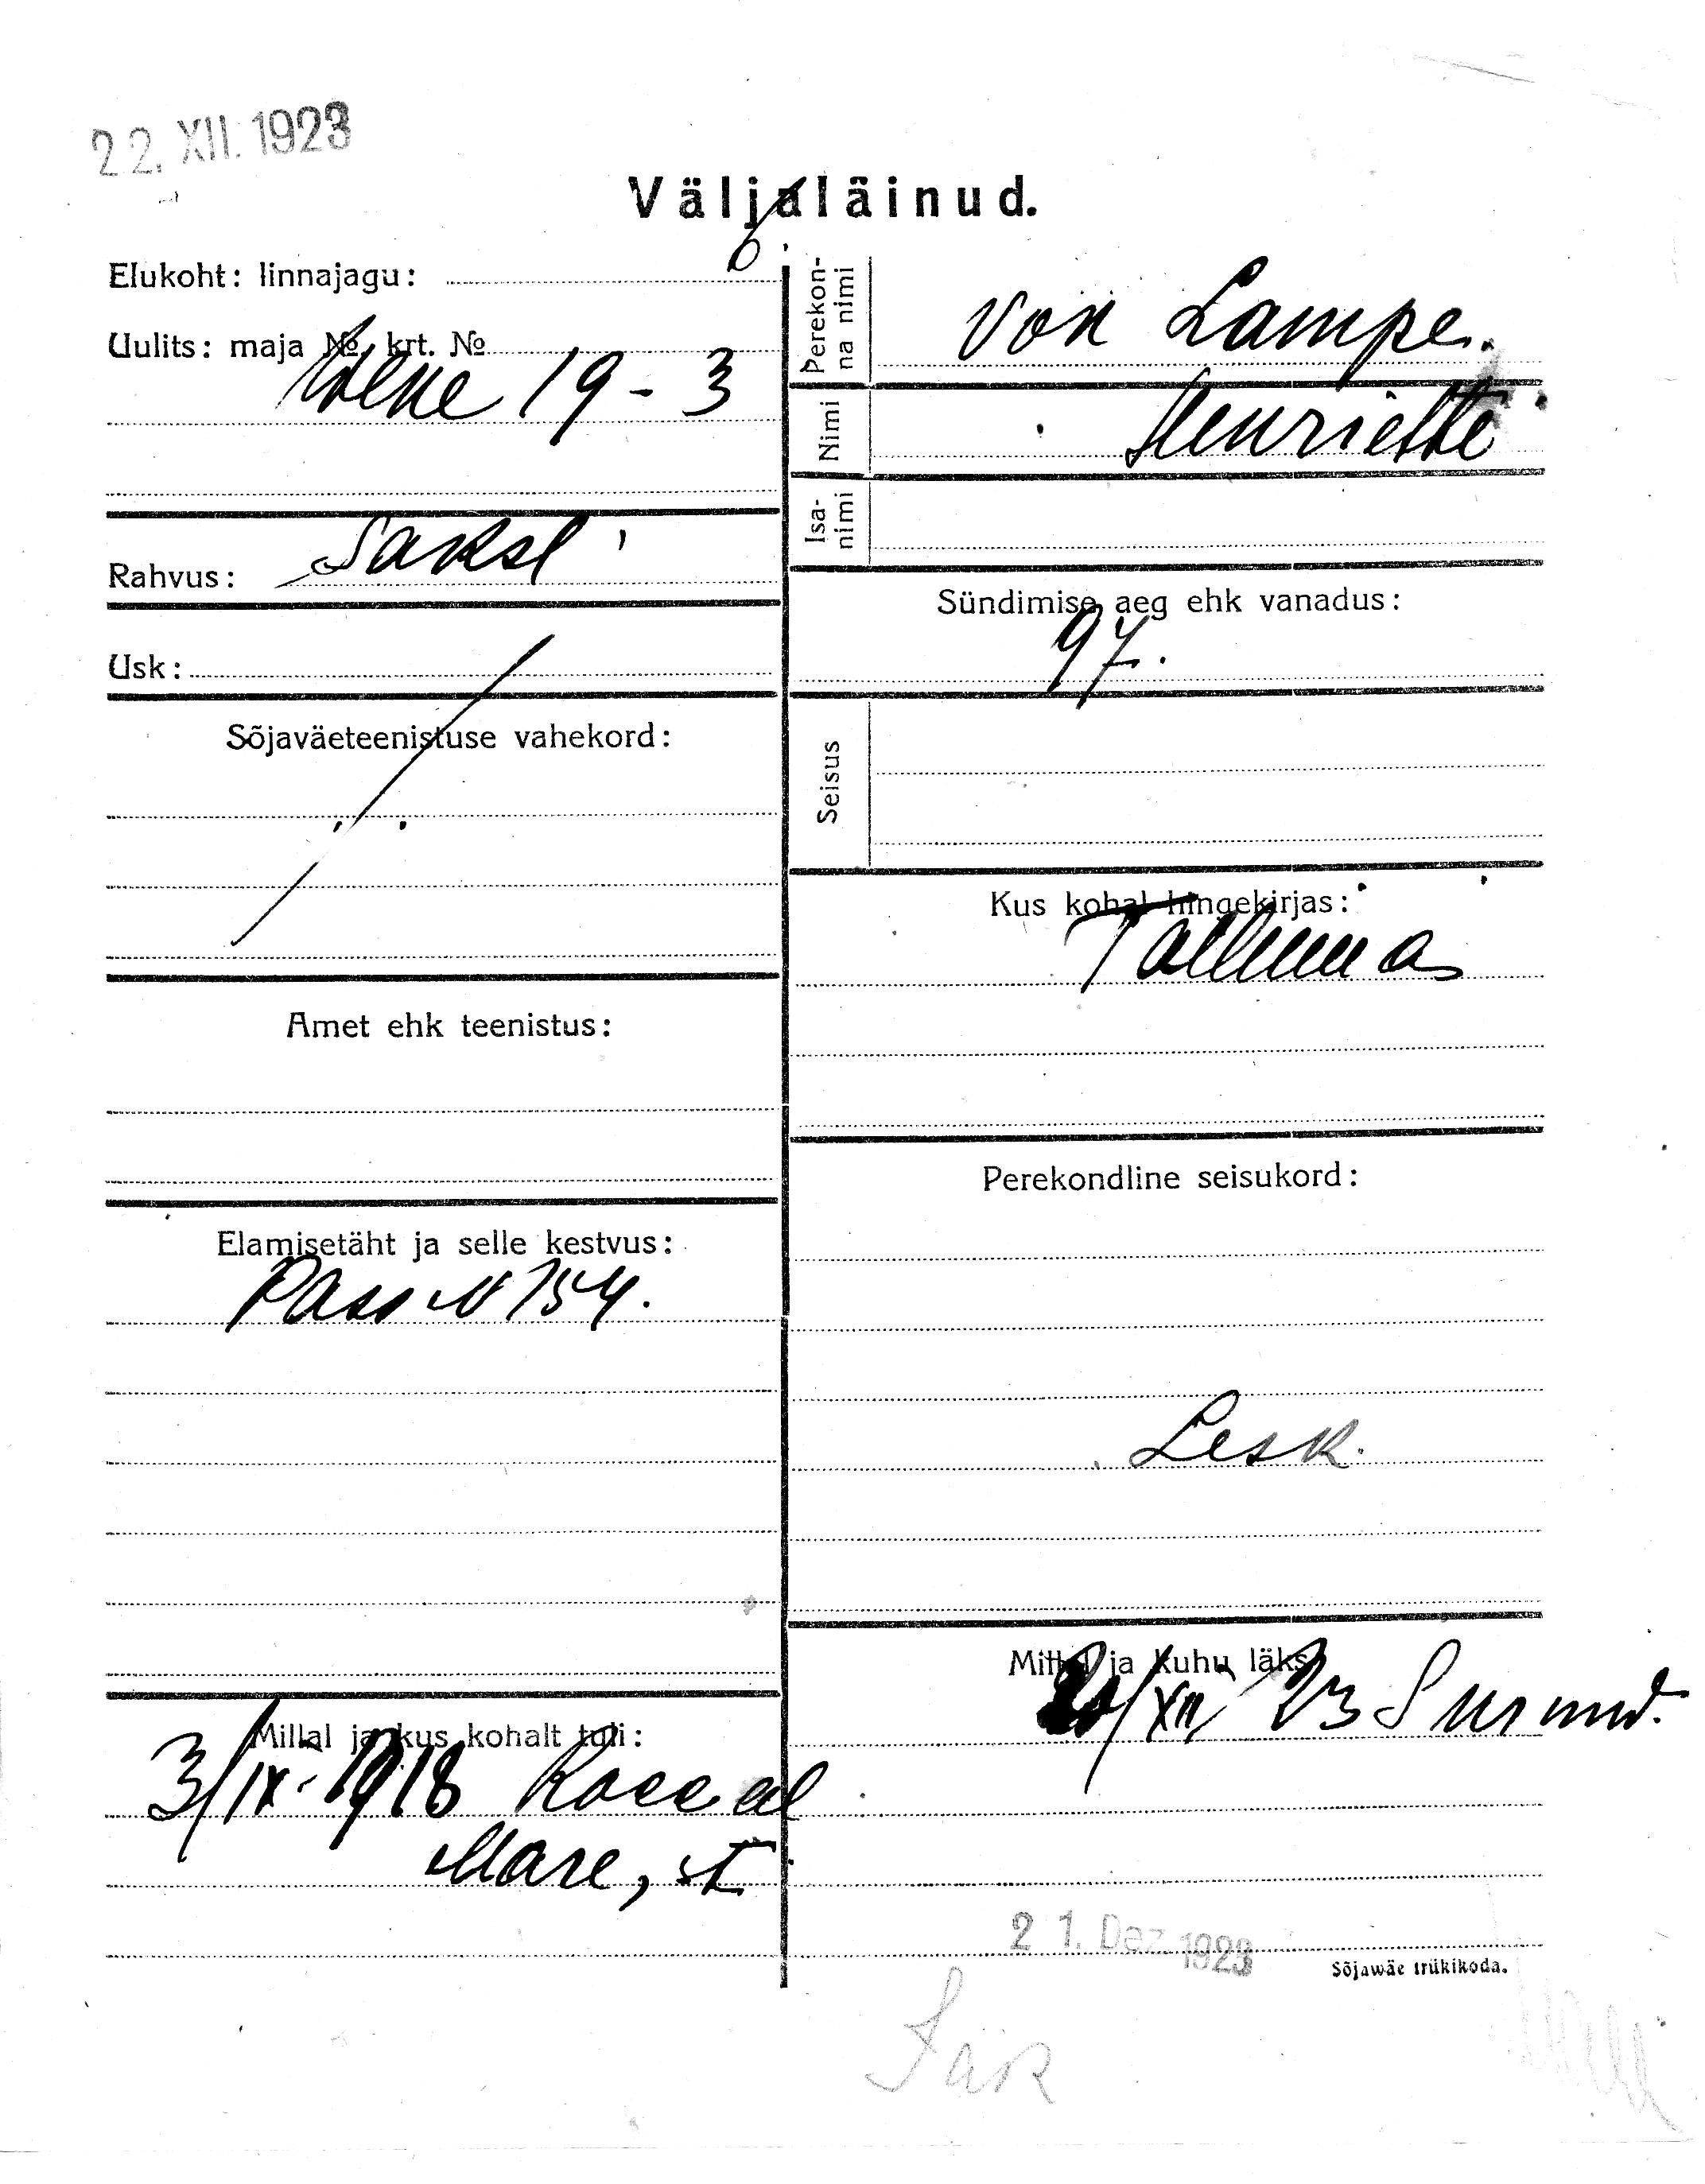 22. XII. 1923
Väljaläinud.
Elukoht: linnajagu:
Uulits: maja № krt. №
Wene 19 - 3
Rahvus: Saksl
Usk:
Sõjaväeteenistuse vahekord:
Amet ehk teenistus:
Elamisetäht ja selle kestvus:
Pass N 154.
Millal ja kus kohalt tuli:
3/IX - 1918
Perekonna nimi von Lampe.
Nimi Henriette
Isanimi
Sündimise aeg ehk vanadus:
97.
Seisus
Kus kohal hingekirjas:
Tallinna
Perekondline seisukord:
Lesk.
Millal ja kuhu läks
/XII 23 Surnud.
21. Dez. 1923
Sõjawäe trükikoda.